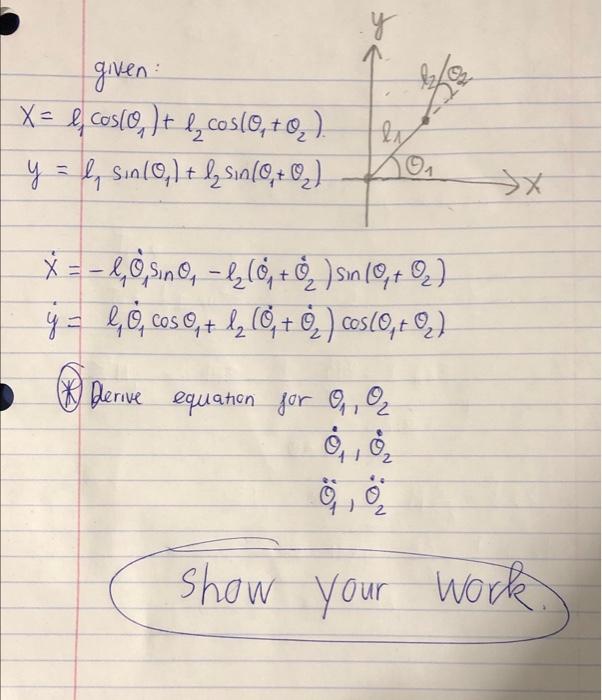 y
given:
l₂ θ₂
x = l₁ cos(θ₁) + l₂ cos(θ₁+θ₂).
l₁
y = l₁ sin(θ₁) + l₂ sin(θ₁+θ₂)
θ₁
x
ẋ = -l₁θ̇₁sinθ₁ - l₂(θ̇₁+θ̇₂)sin(θ₁+θ₂)
ẏ = l₁θ̇₁ cosθ₁ + l₂(θ̇₁+θ̇₂) cos(θ₁+θ₂)
* Derive equation for θ₁, θ₂
θ̇₁, θ̇₂
θ̈₁, θ̈₂
Show your work.